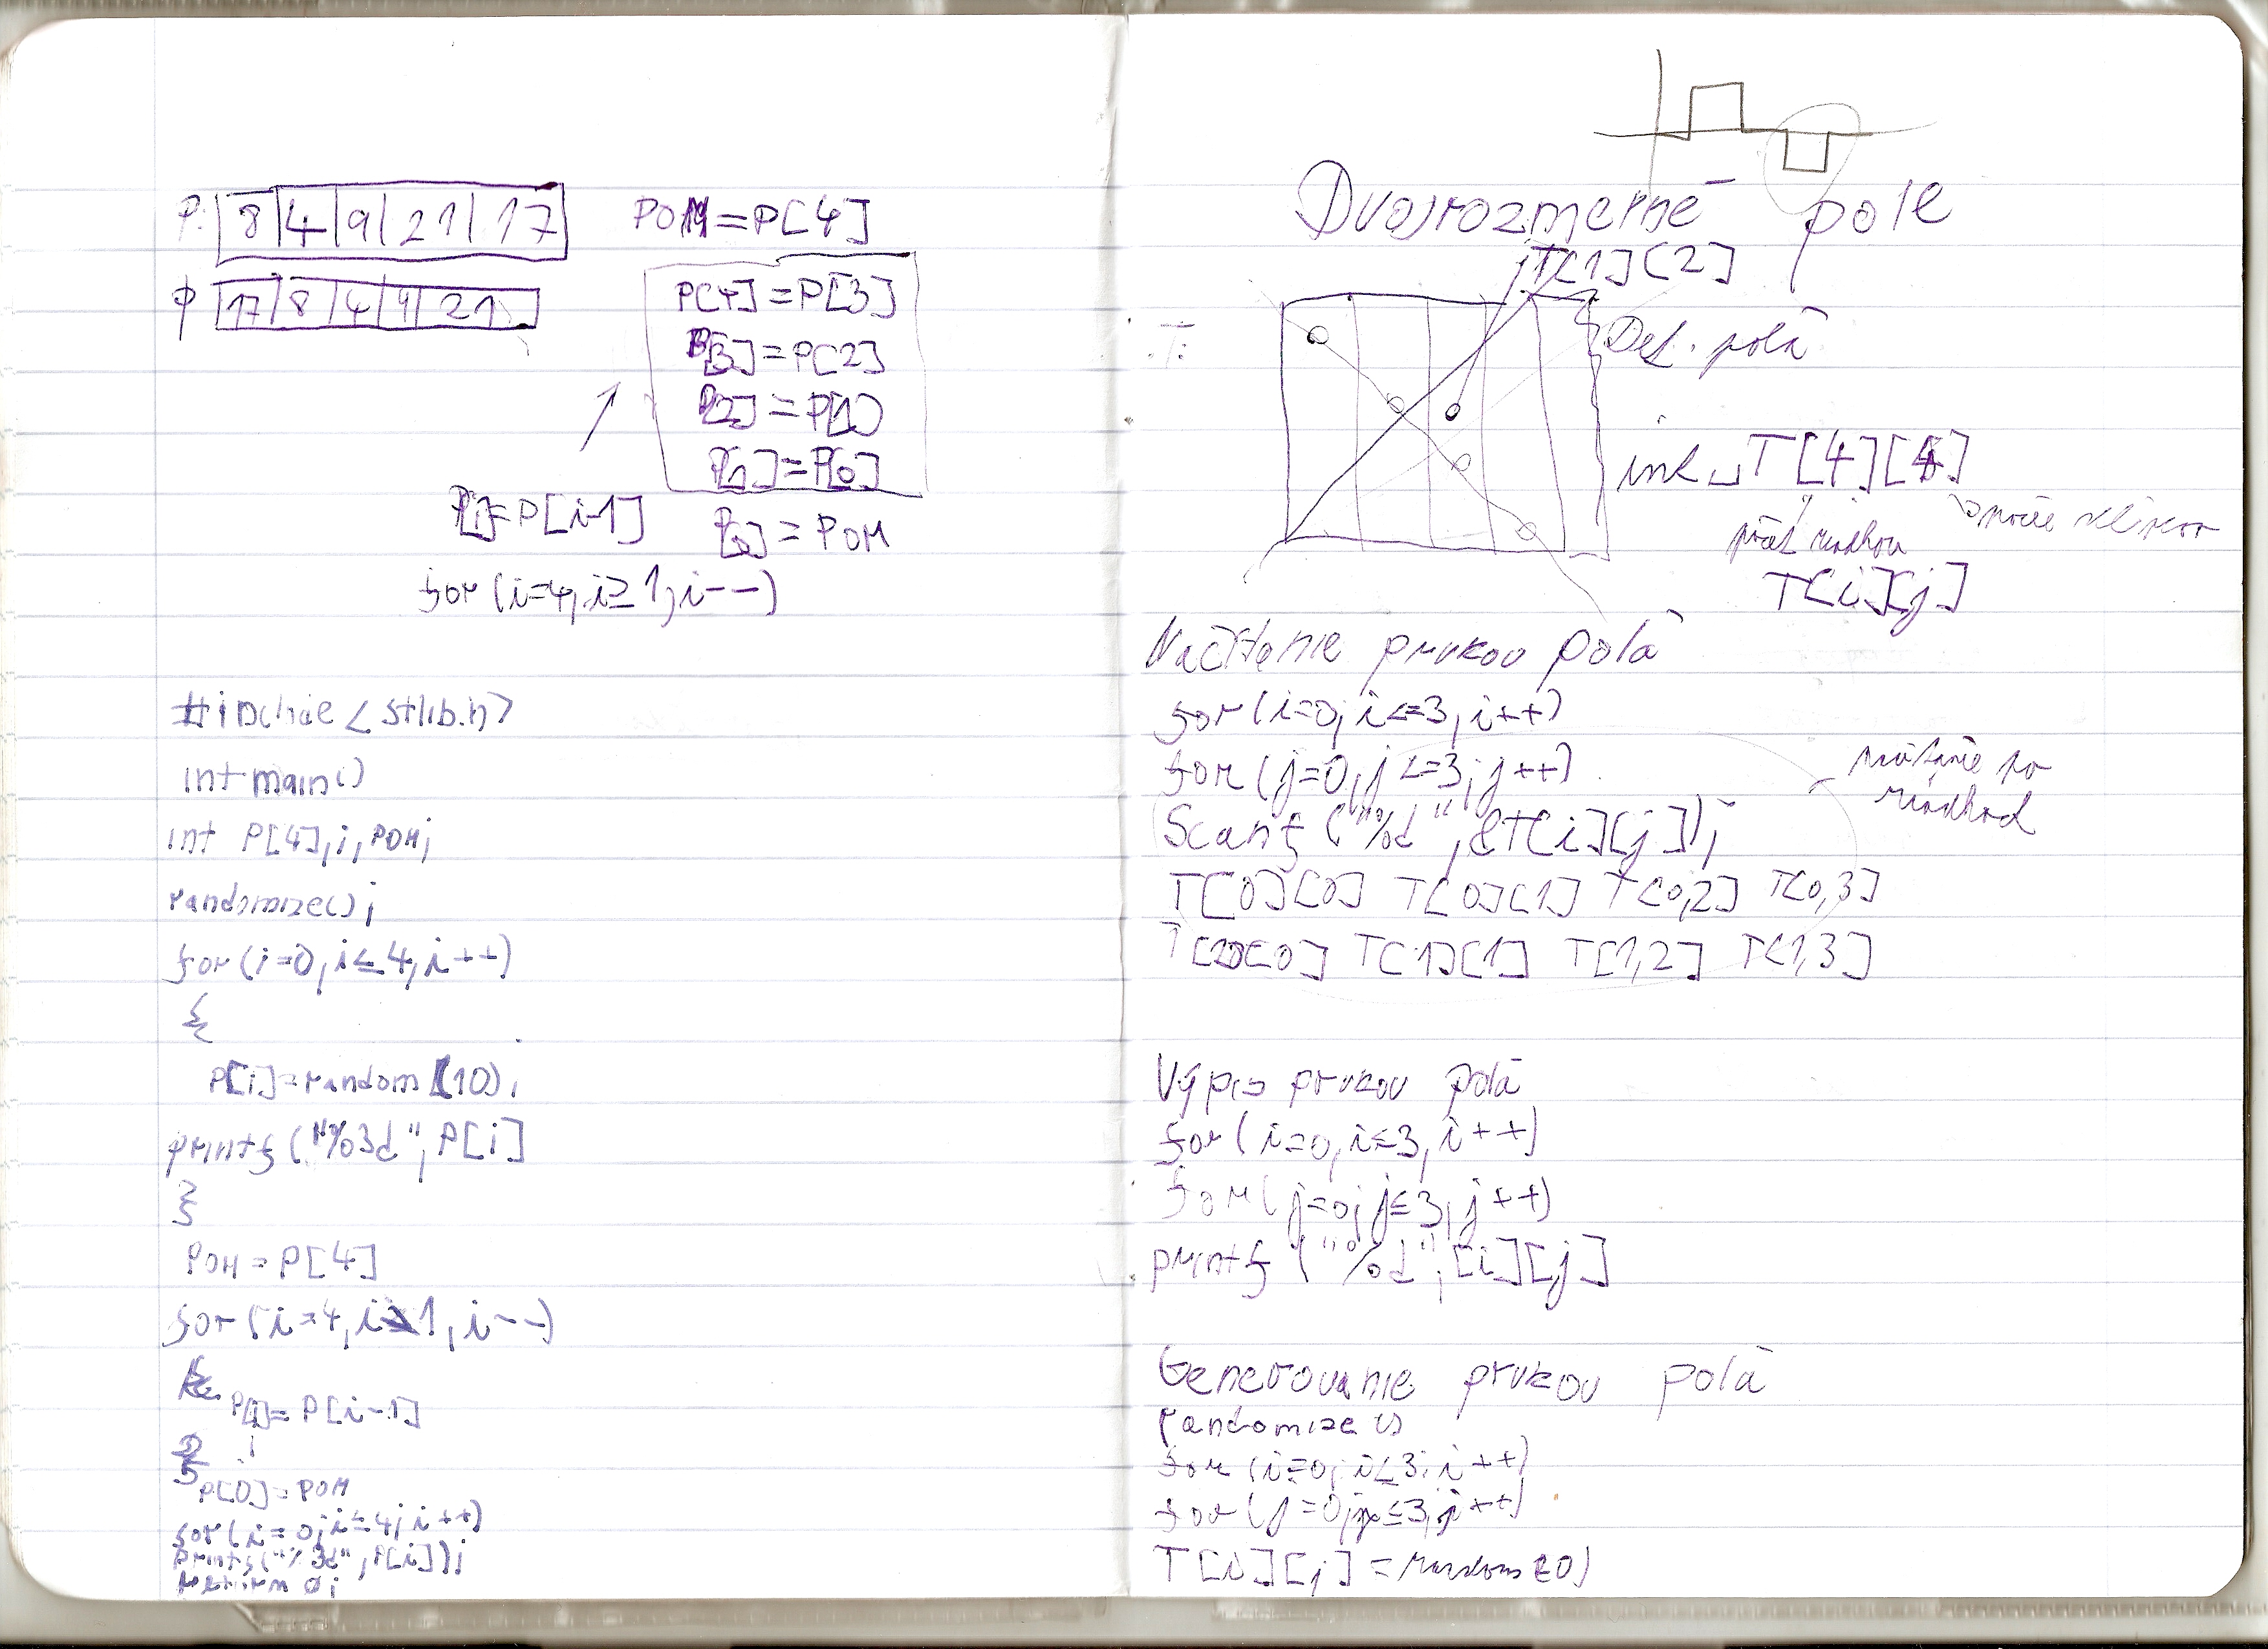 P: 8 4 9 21 17
P 17 8 4 9 21
POM=P[4]
P[4]=P[3]
P[3]=P[2]
P[2]=P[1]
P[1]=P[0]
P[i]=P[i-1]
P[0]=POM
for (i=4, i≥1, i--)
int main()
int P[4], i, POM;
randomize();
for (i=0, i≤4, i++)
{
P[i]=random(10);
printf("%3d", P[i]
}
POM=P[4]
for (i=4, i≥1, i--)
{
P[i]=P[i-1]
}
P[0]=POM
for (i=0; i≤4; i++)
printf("%3d", P[i]);
return 0;
Dvojrozmerné pole
T[1][2]
T:
Def. polā
int T[4][4]
T[i][j]
Načítanie prvkov polā
for (i=0, i<=3, i++)
for (j=0, j<=3; j++)
Scanf ("%d", &T[i][j]);
T[0][0] T[0][1] T[0,2] T[0,3]
T[1][0] T[1][1] T[1,2] T[1,3]
Výpis prvkov polā
for (i=0, i≤3, i++)
for (j=0, j≤3, j++)
printf ("%d", [i][j]
Generovanie prvkov polā
randomize ()
for (i=0; i≤3; i++)
for (j=0; j≤3, j++)
T[i][j] =